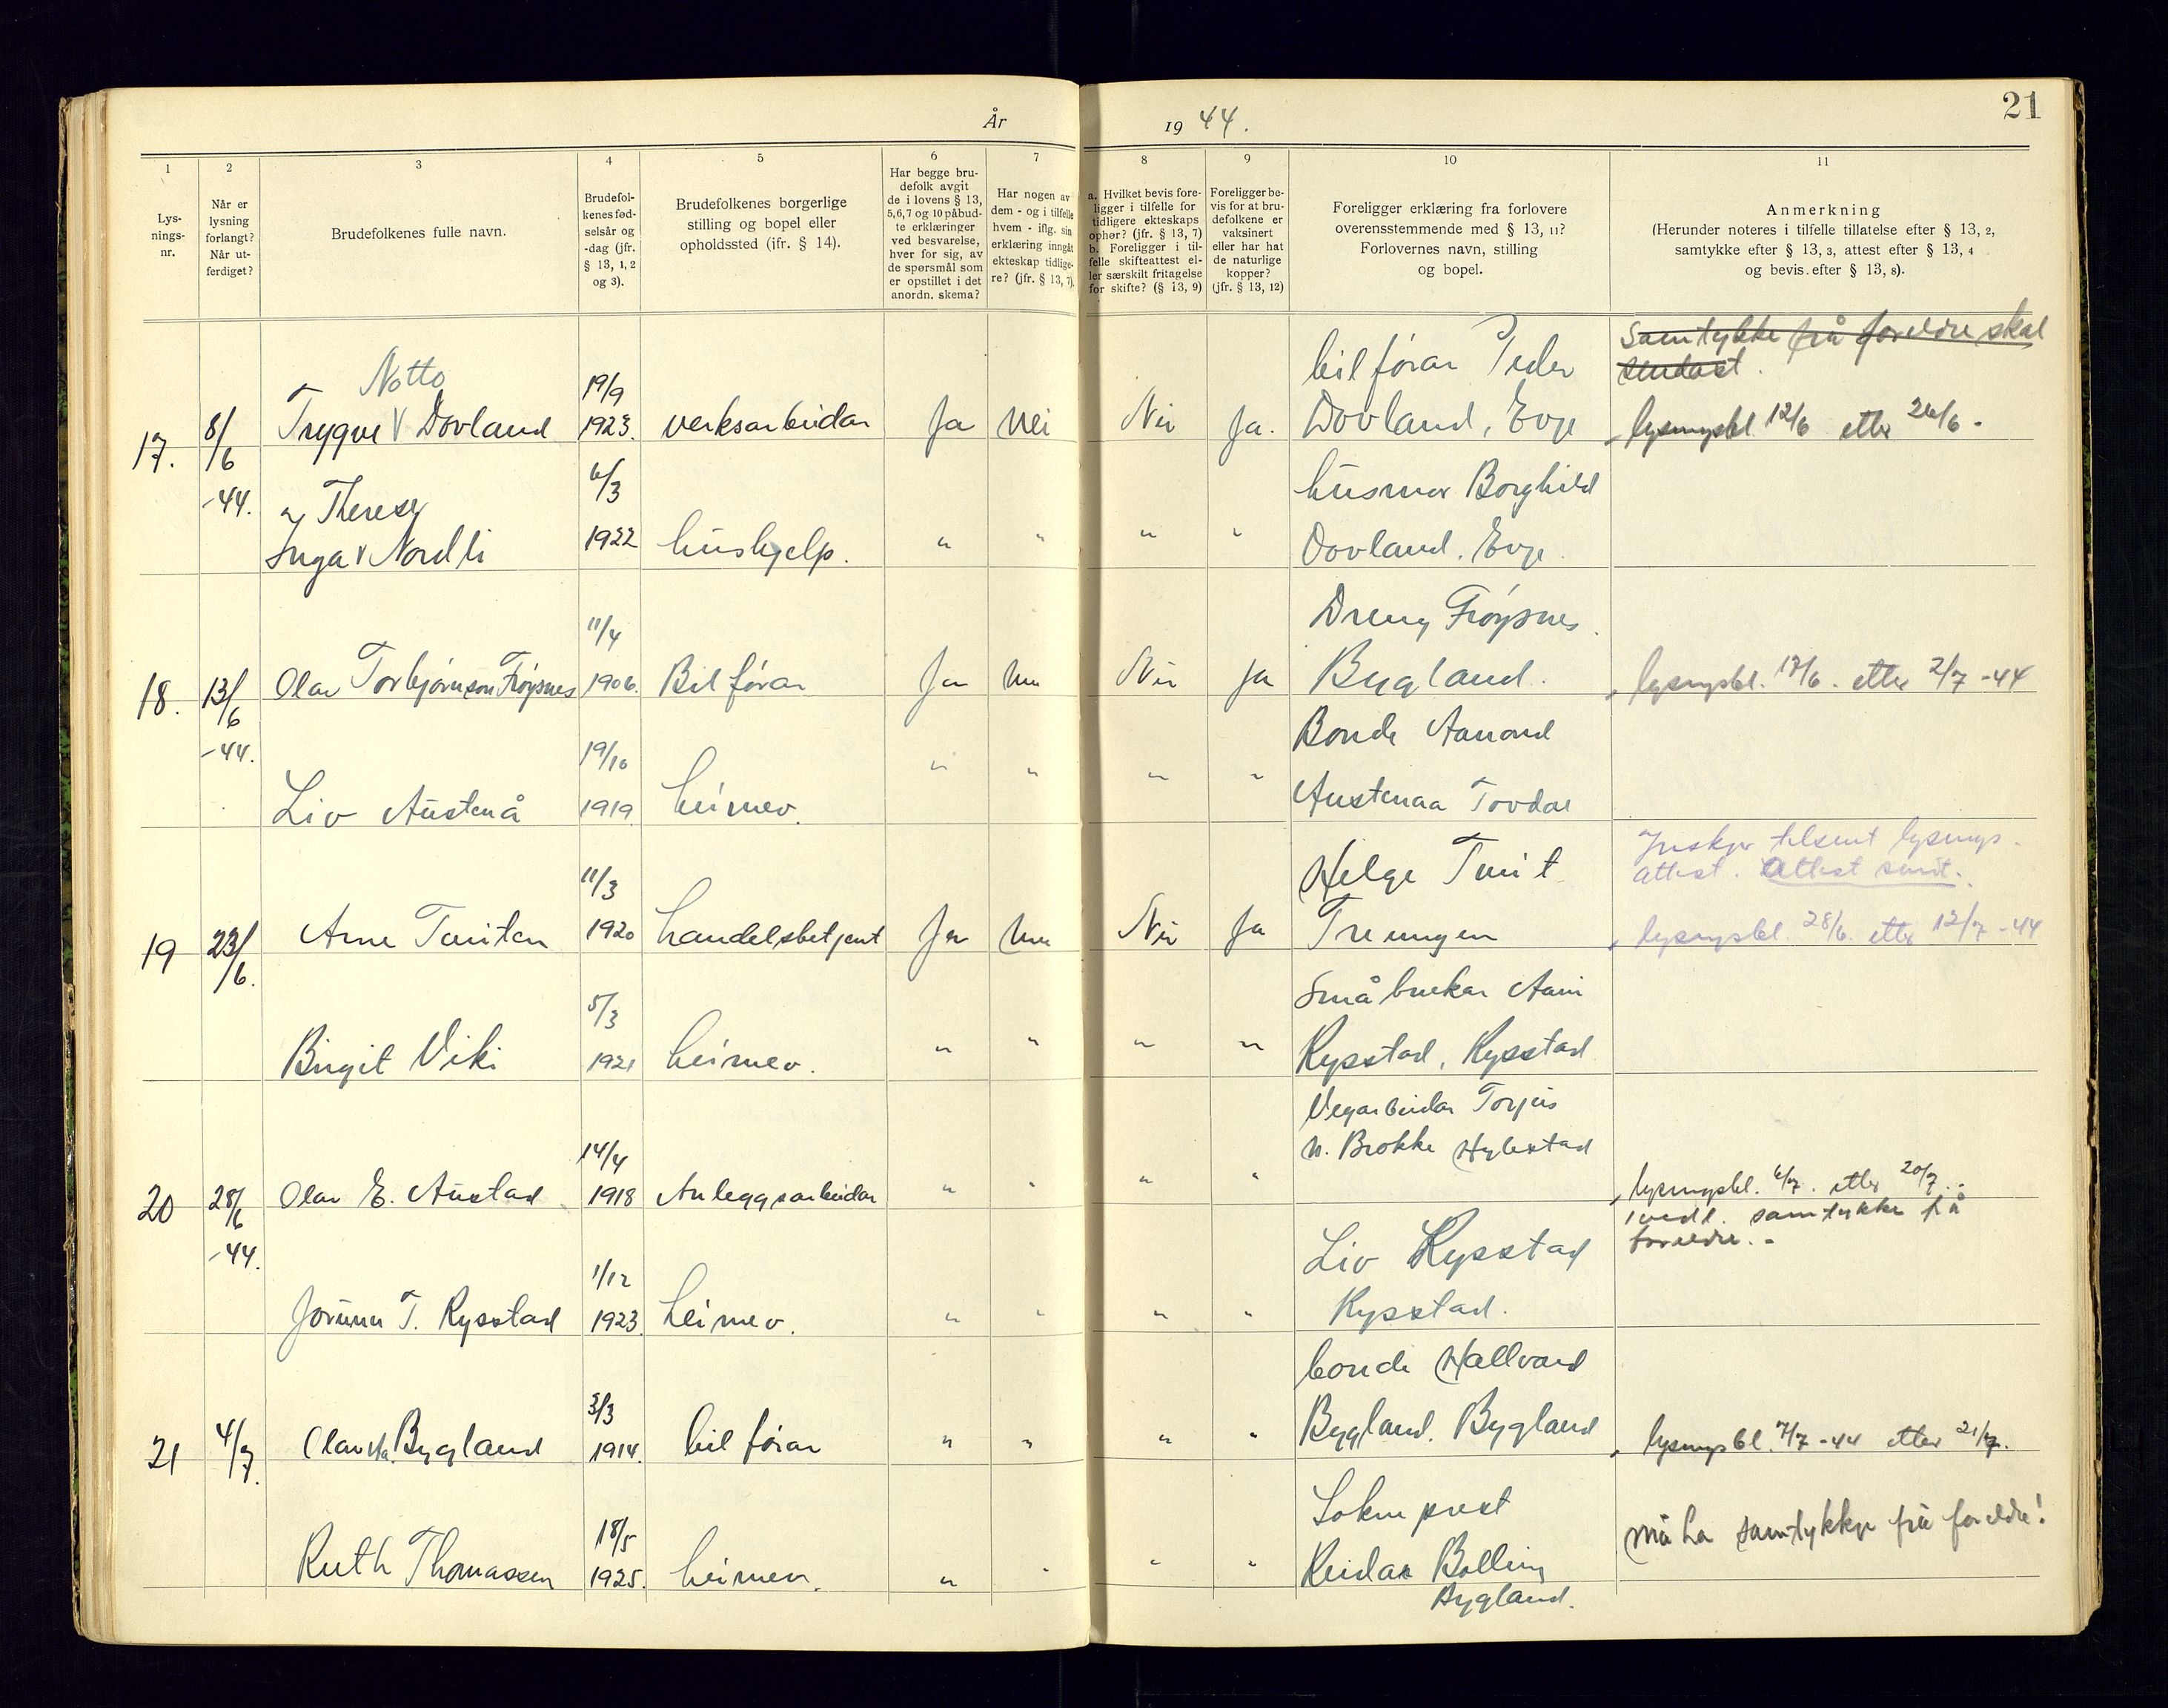 År
19 44.
21
1
2
3
4
5
6
7
8
9
10
11
Lys-
nings-
nr.
Når er
lysning
forlangt?
Når ut-
ferdiget?
Brudefolkenes fulle navn.
Brudefol-
kenes fød-
selsår og
-dag (jfr.
§ 13, 1, 2
og 3).
Brudefolkenes borgerlige
stilling og bopel eller
opholdssted (jfr. § 14).
Har begge bru-
defolk avgit
de i lovens § 13,
5, 6, 7 og 10 påbud-
te erklæringer
ved besvarelse,
hver for sig, av
de spørsmål som
er opstillet i det
anordn. skema?
Har nogen av
dem - og i tilfelle
hvem - iflg. sin
erklæring inngått
ekteskap tidlige-
re? (jfr. § 13, 7).
a. Hvilket bevis fore-
ligger i tilfelle for
tidligere ekteskaps
ophør? (jfr. § 13, 7)
b. Foreligger i til-
felle skifteattest el-
ler særskilt fritagelse
for skifte? (§ 13, 9)
Foreligger be-
vis for at bru-
defolkene er
vaksinert
eller har hat
de naturlige
kopper?
(jfr. § 13, 12)
Foreligger erklæring fra forlovere
overensstemmende med § 13, 11?
Forlovernes navn, stilling
og bopel.
Anmerkning
(Herunder noteres i tilfelle tillatelse efter § 13, 2,
samtykke efter § 13, 3, attest efter § 13, 4
og bevis efter § 13, 8).
17.
8/6
-44.
Notto
Trygve V Dovland
19/9
1923.
verksarbeidar
Ja
Nei
Nei
Ja.
bilförar Peder
Dovland, Evje
Samtykke frå foreldre skal
sendast.
lysingsbl. 12/6 etter 26/6 -
Therese
Inga V Nordli
6/3
1922
húshjelp.
" " " "
húsmor Borghild
Dovland. Evje.
18.
13/6
-44.
Olav Torbjørnson Frøysnes
11/4
1906.
Bilførar
Ja
Nei
Nei
Ja
Dreng Frøysnes
Bygland.
lysingsbl. 17/6. etter 2/7 -44
Liv Austenå
19/10
1919.
heimev.
" " " "
Bonde Aanond
Austenaa Tovdal
19
23/6.
Arne Tveiten
11/3
1920
handelsbetjent
Ja
Nei
Nei
Ja
Helge Tveit
Treungen
Ynskjer tilsent lysings-
attest. Attest sendt.
lysingsbl. 28/6. etter 12/7 -44
Birgit Viki
5/3
1921
heimev.
" " " "
Småbrukar Aani
Rysstad, Rysstad
20
28/6
-44.
Olav E. Austad
14/4
1918
Anleggsarbeidar
" " " "
Vegarbeidar Torjus
N. Brokke Hylestad
lysingsbl. 6/7. etter 20/7.-
samtykke frå
foreldre.-
Jorunn T. Rysstad
1/12
1923.
heimev.
" " " "
Liv Rysstad
Rysstad.
21
4/7.
Olav Ha. Bygland
3/3
1914.
bilførar
" " " "
bonde Hallvard
Bygland. Bygland
lysingsbl. 7/7 -44 etter 21/7.
Ruth Thomassen
18/5
1925.
heimev.
" " " "
Sokneprest
Reidar Bolling
Bygland.
må ha samtykkje frå foreldre!